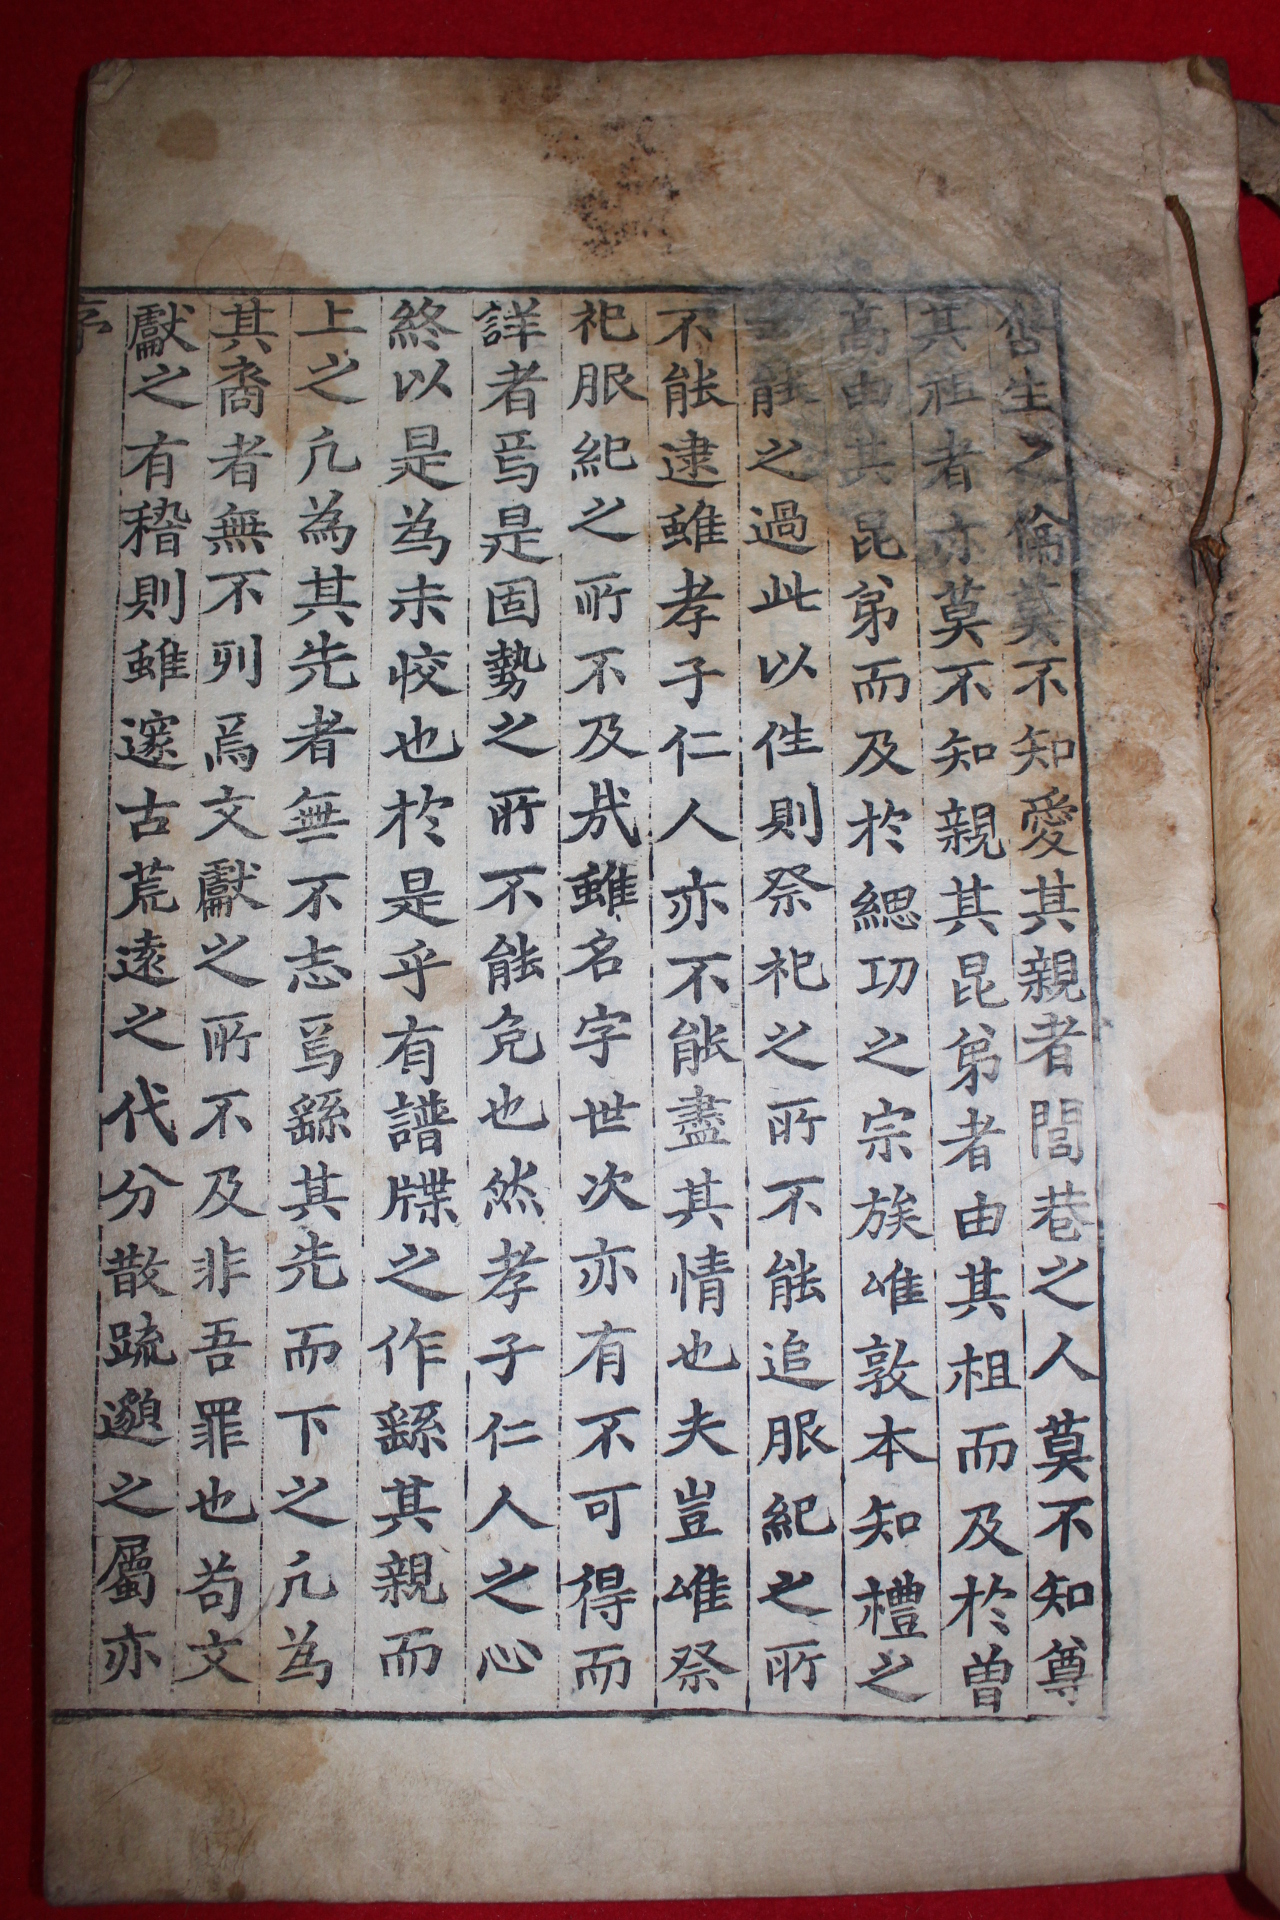 含生之倫莫不知愛其親者閭巷之人莫不知尊
其祖者亦莫不知親其昆弟者由其祖而及於曾
高由其昆弟而及於緦功之宗族唯敦本知禮之
能之過此以徃則祭祀之所不能追服紀之所
不能逮雖孝子仁人亦不能盡其情也夫豈唯祭
祀服紀之所不及㢤雖名字世次亦有不可得而
詳者焉是固勢之所不能免也然孝子仁人之心
終以是為未恔也於是乎有譜牒之作繇其親而
上之凢為其先者無不志焉繇其先而下之凢為
其裔者無不列焉文獻之所不及非吾罪也苟文
獻之有稽則雖邃古荒逺之代分散䟽邈之屬亦
序